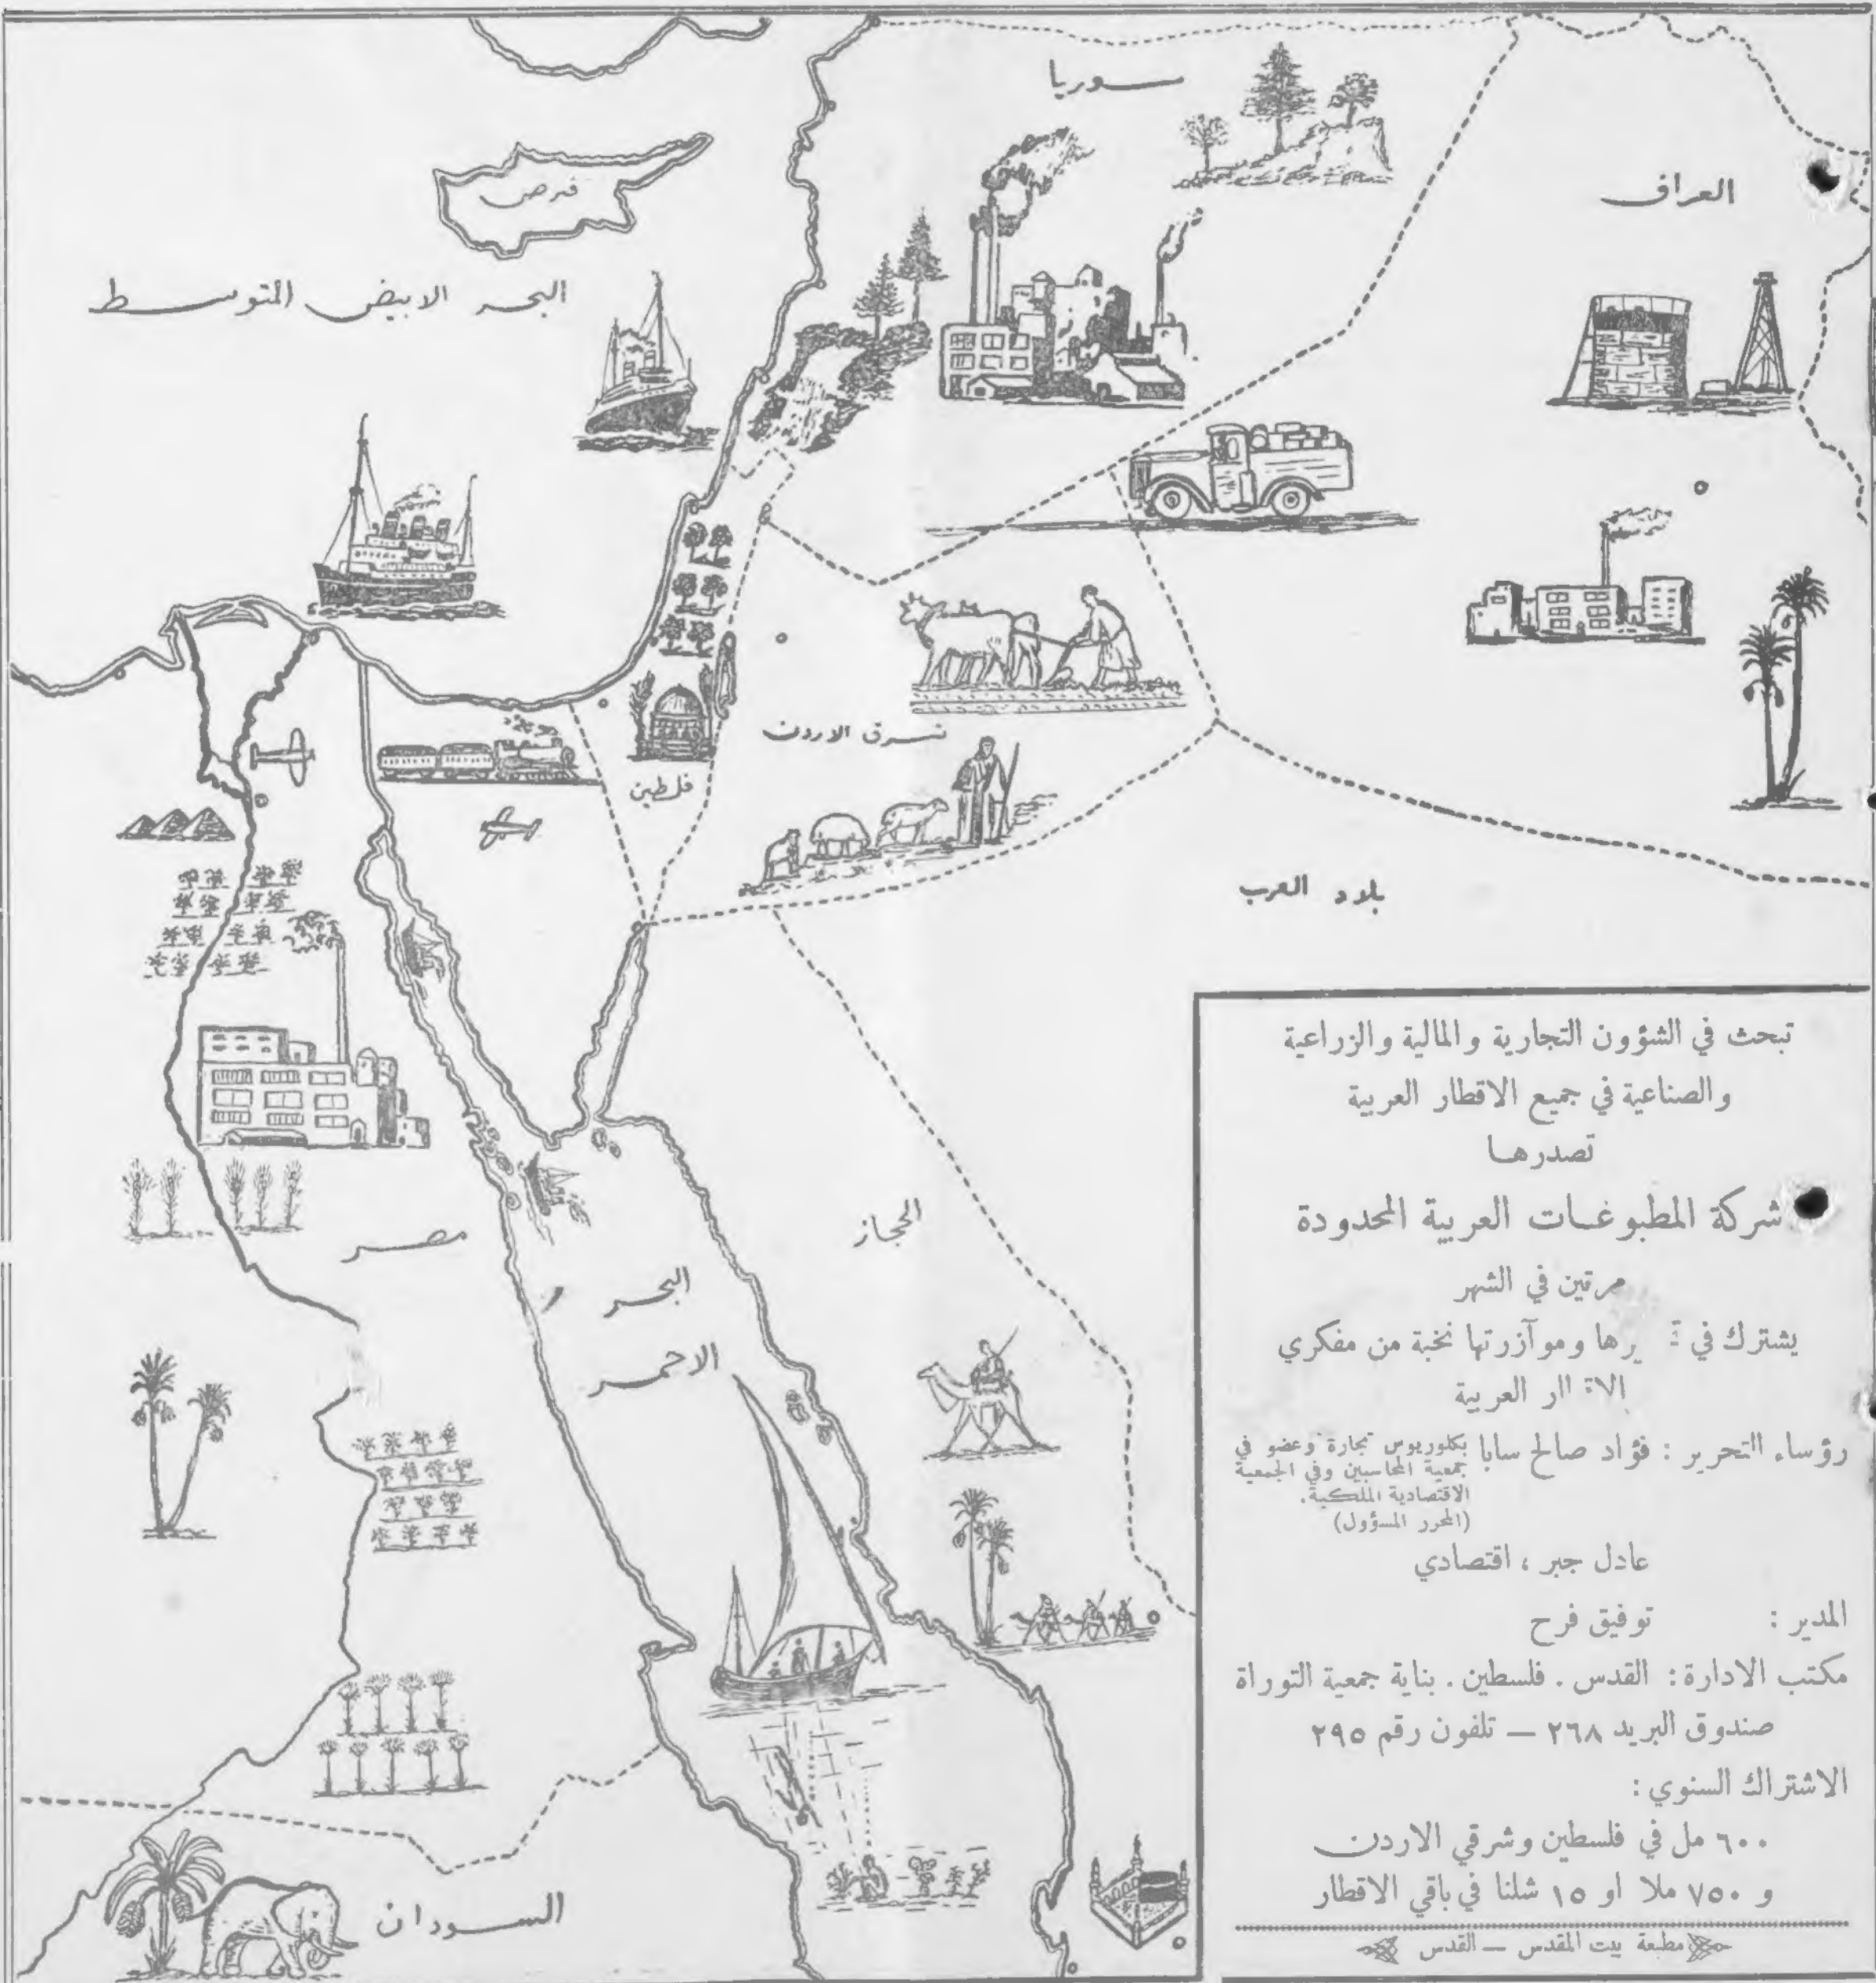 سوريا
العراق
قبرص
البحر الابيض المتوسط
شرق الاردن
فلسطين
بلاد العرب
مصر
الحجاز
البحر
الاحمر
السودان
تبحث في الشؤون التجارية والمالية والزراعية
والصناعية في جميع الاقطار العربية
تصدرها
شركة المطبوعات العربية المحدودة
مرتين في الشهر
يشترك في وموآزرتها نخبة من مفكري
العربية
رؤساء التحرير : فؤاد صالح سابا بكلوريوس تجارة وعضو في
جمعية المحاسبين وفي الجمعية
الاقتصادية الملكية.
(المحرر المسؤول)
عادل جبر ، اقتصادي
المدير : توفيق فرح
مكتب الادارة : القدس . فلسطين . بناية جمعية التوراة
صندوق البريد ٢٦٨ — تلفون رقم ٢٩٥
الاشتراك السنوي :
٦٠٠ مل في فلسطين وشرقي الاردن
و ٧٥٠ ملا او ١٥ شلنا في باقي الاقطار
مطبعة بيت المقدس — القدس